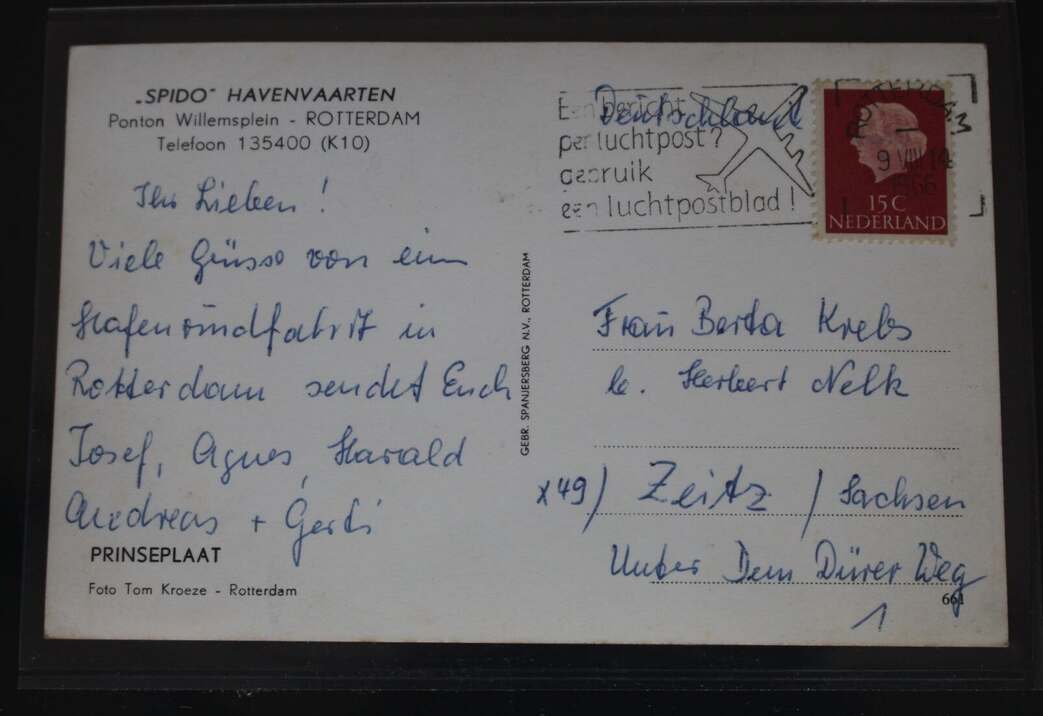 „SPIDO" HAVENVAARTEN
Ponton Willemsplein - ROTTERDAM
Telefoon 135400 (K10)
Ihr Lieben !
Viele Grüsse von ein
Hafenrundfahrt in
Rotterdam sendet Euch
Josef, Agnes, Harald
Andreas + Gerti
PRINSEPLAAT
Foto Tom Kroeze - Rotterdam
GEBR. SPANJERSBERG N.V., ROTTERDAM
Deutschland
Een bericht
per luchtpost?
gebruik
een luchtpostblad!
ROTTERDAM
9 VIII 14
1966
15 C
NEDERLAND
Frau Berta Krebs
b. Herbert Nelk
x49) Zeitz / Sachsen
Unter Dem Dürer Weg
1
661